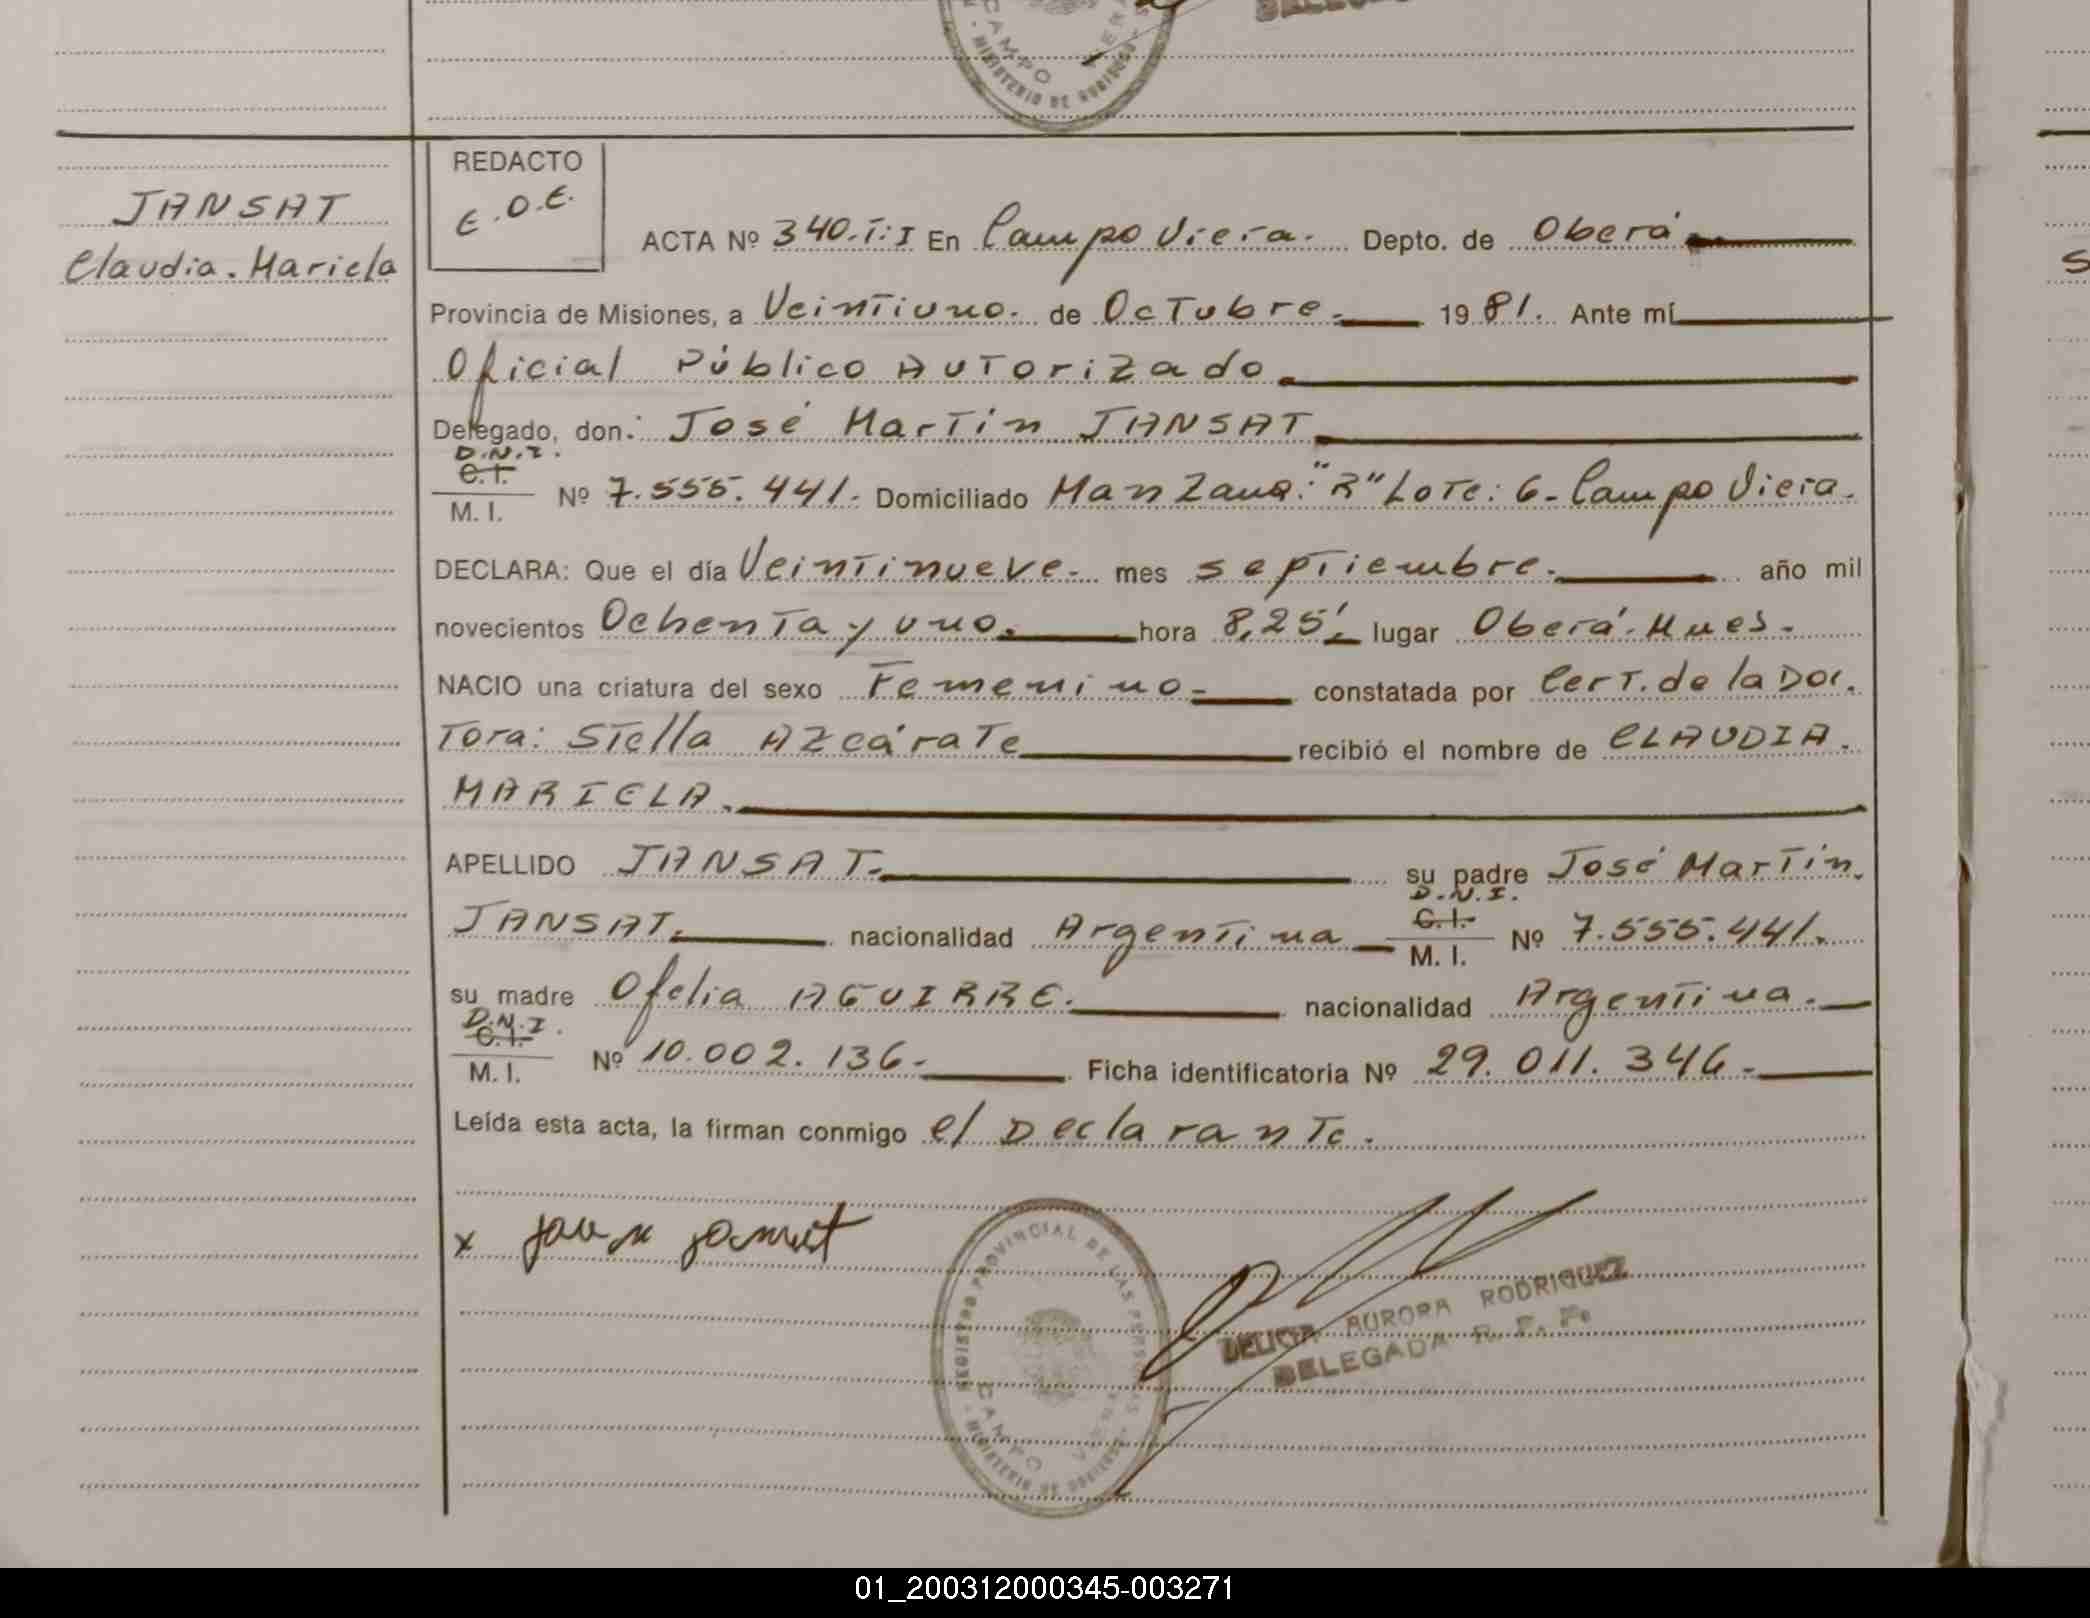 JANSAT
Claudia. Mariela
REDACTO
E.O.E.
ACTA Nº 340.T:I En Campo Viera. Depto. de Oberá
Provincia de Misiones, a Veintiuno. de Octubre. 1981. Ante mí
Oficial Público Autorizado.
Delegado, don: José Martín JANSAT
D.N.I.
C.I.
M. I. Nº 7.555.441. Domiciliado Manzana: "R" Lote: 6- Campo Viera.
DECLARA: Que el día Veintinueve. mes septiembre. año mil
novecientos Ochenta y uno. hora 8,25'. lugar Oberá. Mnes.
NACIO una criatura del sexo Femenino- constatada por Cert. de la Doc.
tora: Stella Azcárate recibió el nombre de CLAUDIA.
MARIELA.
APELLIDO JANSAT. su padre José Martín.
D.N.I.
JANSAT. nacionalidad Argentina C.I. Nº 7.555.441.
M. I.
su madre Ofelia AGUIRRE. nacionalidad Argentina.
D.N.I.
C.I.
M. I. Nº 10.002.136- Ficha identificatoria Nº 29.011.346-
Leída esta acta, la firman conmigo el Declarante.
x
REGISTRO PROVINCIAL DE LAS PERSONAS
CAMPO VIERA
DELICIA AURORA RODRIGUEZ
DELEGADA R. P. P.
01_200312000345-003271